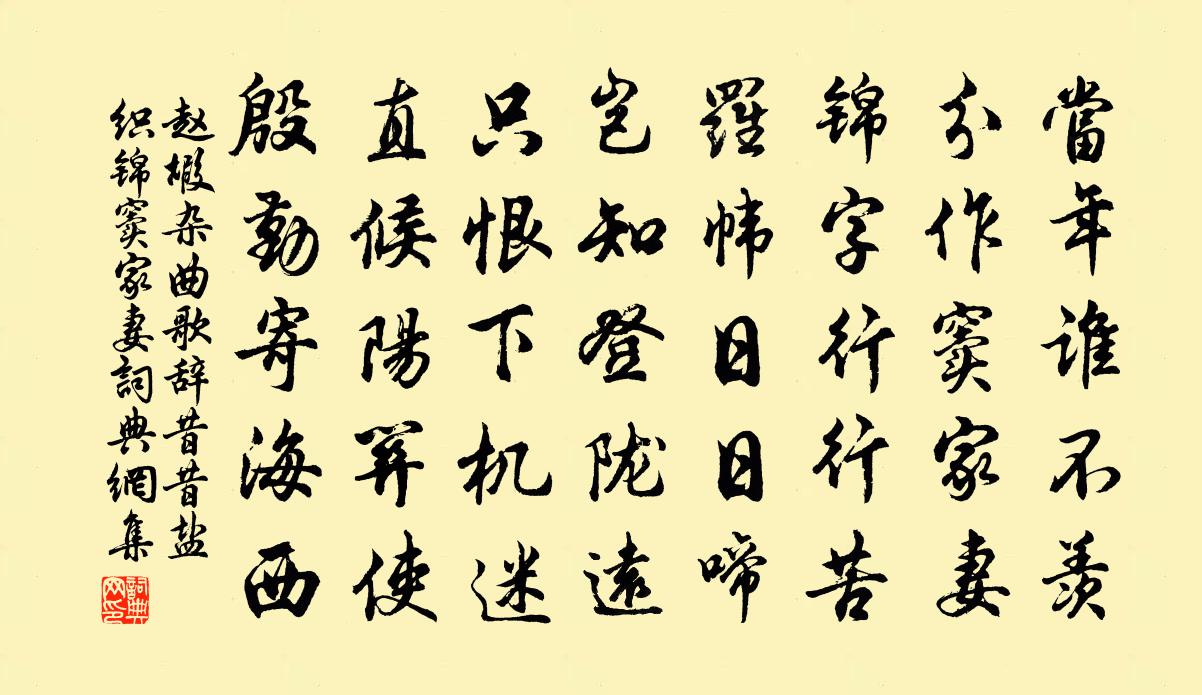 當年誰不羨
分作竇家妻
錦字行行苦
羅幃日日啼
岂知登陇遠
只恨下机迷
直候陽關使
殷勤寄海西
赵嘏杂曲歌辞昔昔盐
织锦窦家妻詞典網集
詞典网印